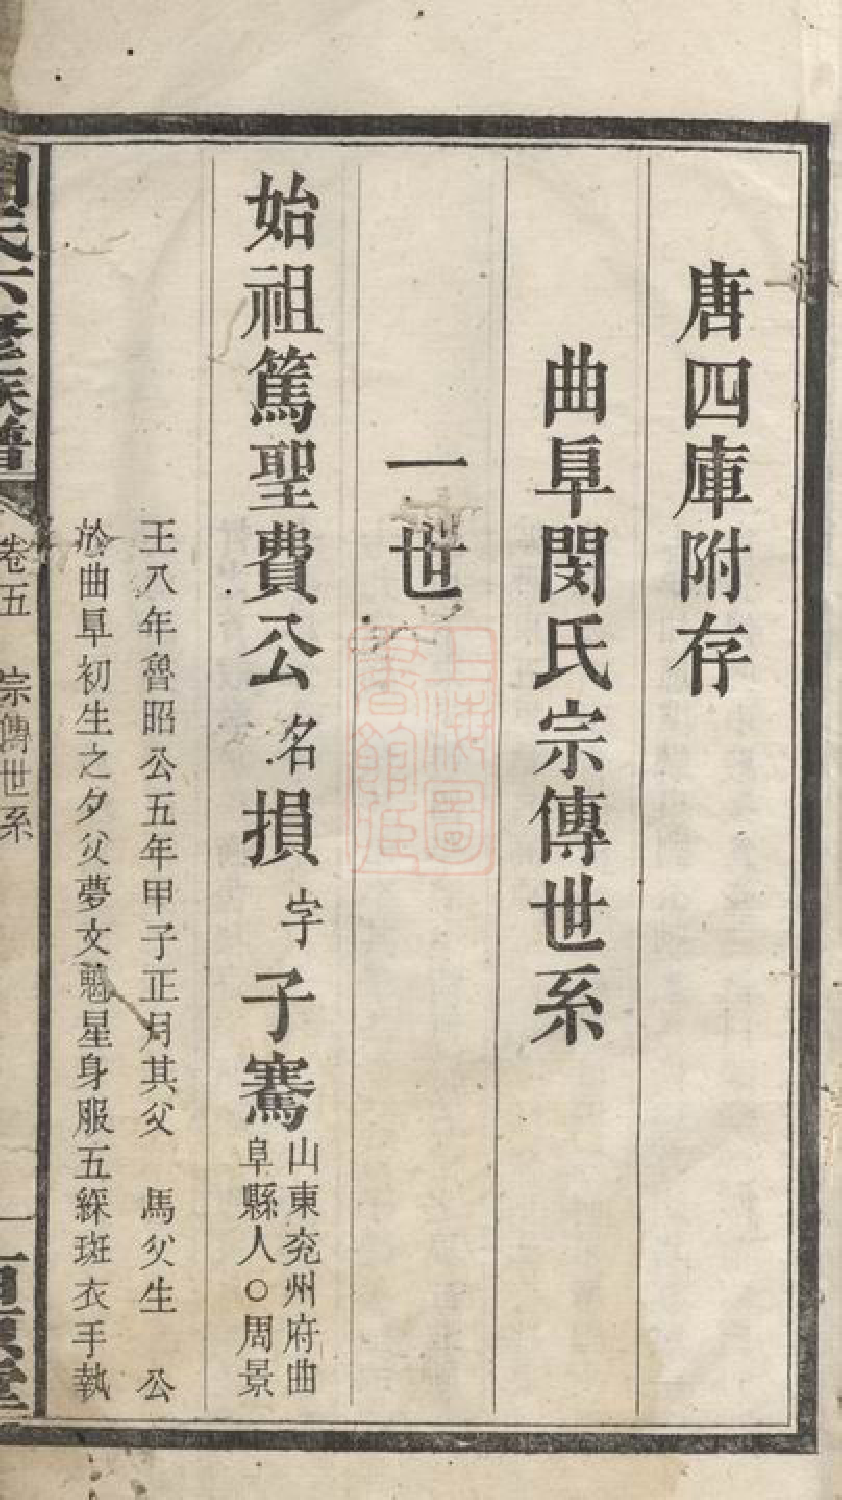 唐四庫附存
曲阜閔氏宗傳世系
一世
始祖篤聖費公名損字子騫山東兖州府曲
阜縣人○周景
王八年魯昭公五年甲子正月其父　馬父生　公
於曲阜初生之夕父夢文魁星身服五綵斑衣手執
氏六修族譜
卷五　宗傳世系
一
堂
上海圖
書館藏